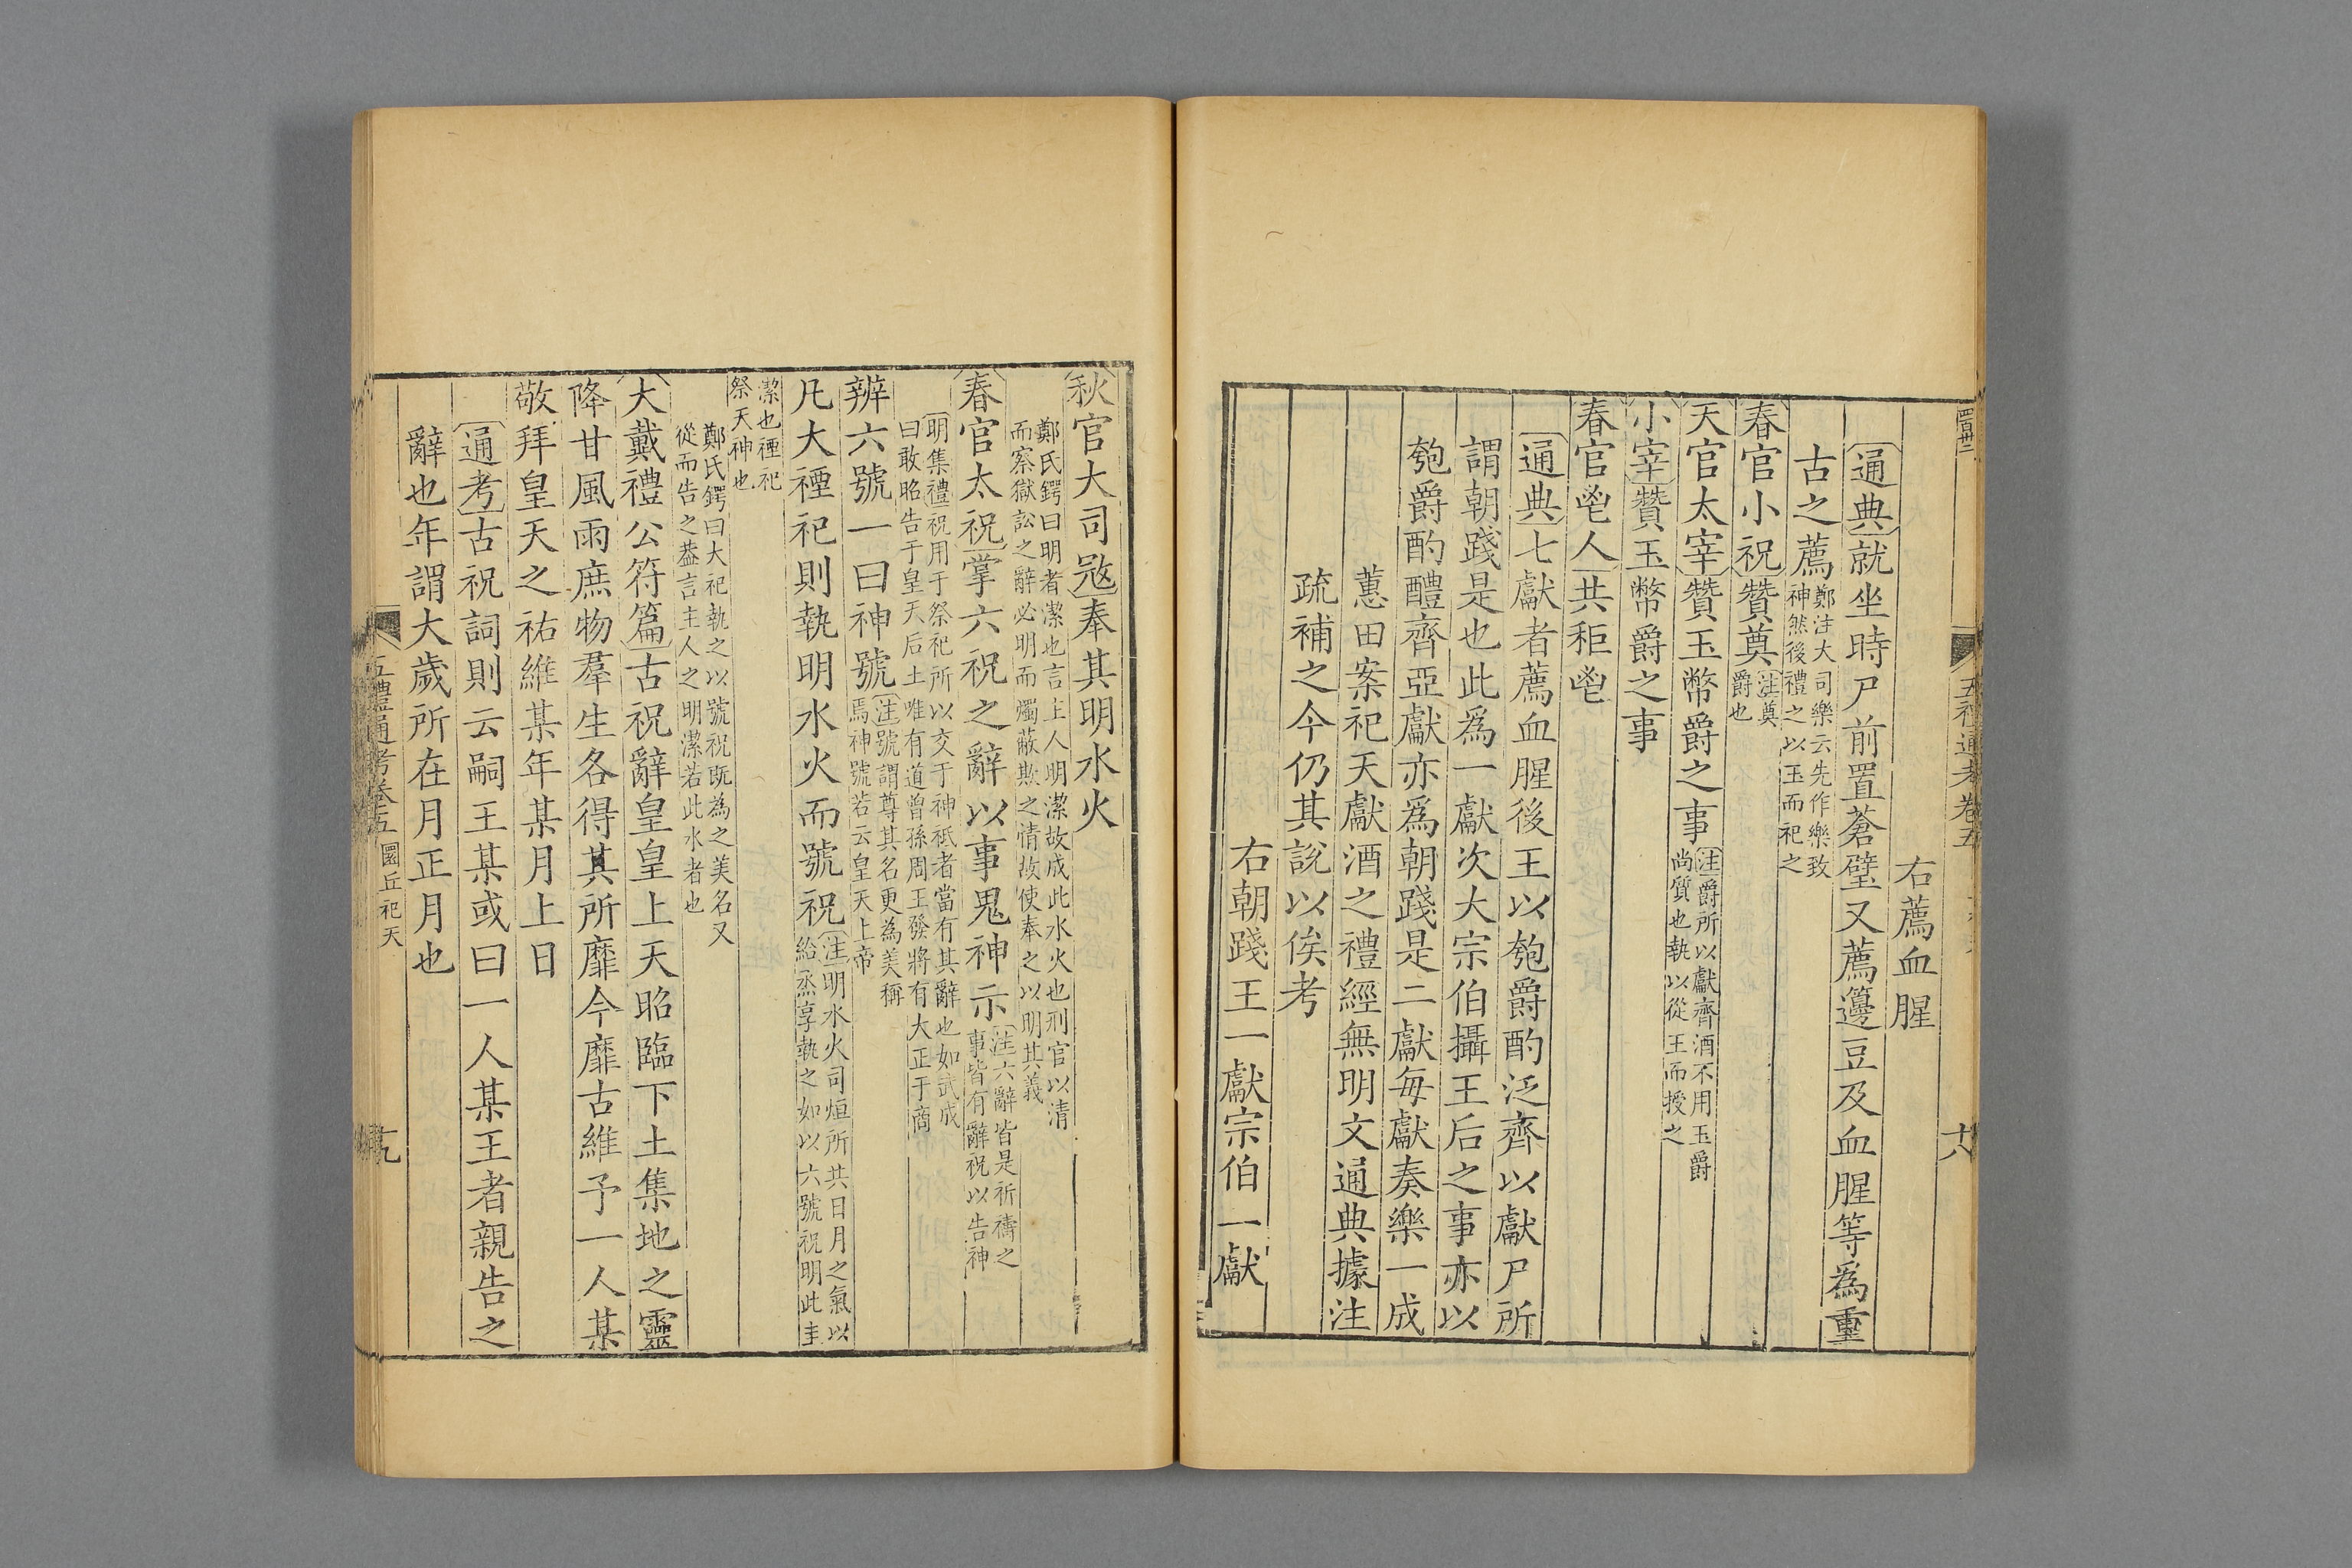 五禮通考卷五
六
右薦血腥
通典就坐時尸前置蒼璧又薦籩豆及血腥等爲重
古之薦鄭注大司樂云先作樂致神然後禮之以玉而祀之
春官小祝贊奠注奠爵也
天官太宰贊玉幣爵之事注爵所以獻齊酒不用玉爵尚質也執以從王而授之
小宰贊玉幣爵之事
春官鬯人共秬鬯
通典七獻者薦血腥後王以匏爵酌泛齊以獻尸所
謂朝踐是也此爲一獻次大宗伯攝王后之事亦以
匏爵酌醴齊亞獻亦爲朝踐是二獻每獻奏樂一成
蕙田案祀天獻酒之禮經無明文通典據注
疏補之今仍其說以俟考
右朝踐王一獻宗伯一獻
秋官大司寇奉其明水火
鄭氏鍔曰明者潔也言主人明潔故成此水火也刑官以清
而察獄訟之辭必明而燭蔽欺之情故使奉之以明其義
春官太祝掌六祝之辭以事鬼神示注六辭皆是祈禱之事皆有辭祝以告神
明集禮祝用于祭祀所以交于神祗者當有其辭也如武成
曰敢昭告于皇天后土唯有道曾孫周王發將有大正于商
辨六號一曰神號注號謂尊其名更為美稱焉神號若云皇天上帝
凡大禋祀則執明水火而號祝注明水火司烜所共日月之氣以給烝享執之如以六號祝明此圭
潔也禋祀
祭天神也
鄭氏鍔曰大祀執之以號祝既為之美名又
從而告之葢言主人之明潔若此水者也
大戴禮公符篇古祝辭皇皇上天昭臨下土集地之靈
降甘風雨庶物羣生各得其所靡今靡古維予一人某
敬拜皇天之祐維某年某月上日
通考古祝詞則云嗣王某或曰一人某王者親告之
辭也年謂大歲所在月正月也
五禮通考卷五 圜丘祀天